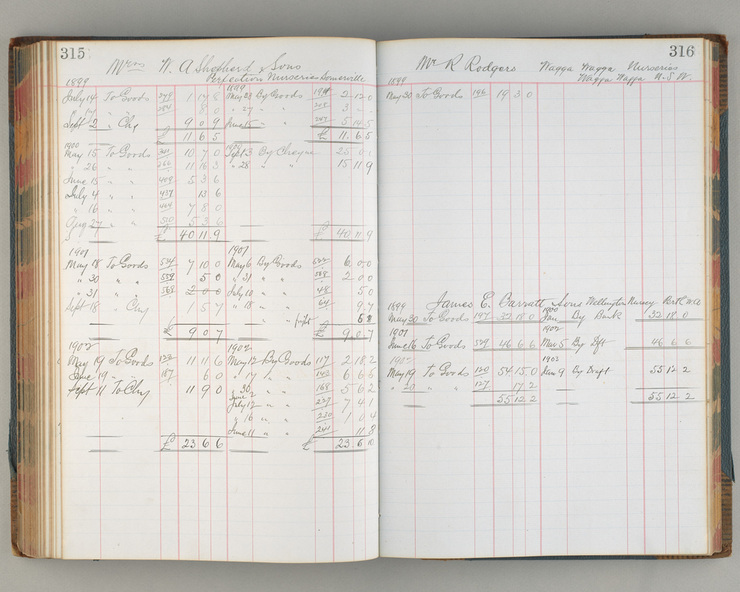 315
Messrs W. A Shepherd & Sons
Perfection Nurseries Somerville
1899 1899
July 14 To Goods 1 17 8 May 23 By Goods 2 12 0
" 27 " "
Sept 2 " Chq 9 0 9 June 15 " " 5 14 5
£ 11 6 5 £ 11 6 5
1900
May 15 To Goods 10 7 0 Sept 13 By Cheque 25 0
" 26 " " 11 16 3 " 28 " " 15 11 9
June 15 " " 5 3 6
July 4 " " 437 13 6
" 16 " " 464 7 8 0
Aug 27 " " 510 5 3 6
£ 40 11 9 £ 40 11 9
1901 1901
May 18 To Goods 534 7 10 0 May 6 By Goods 6 0 0
" 30 " " 559 5 0 " 31 " " 568 2 0 0
" 31 " " 568 2 0 0 July 10 " " 48 5 0
Sept 18 " Chq 1 5 7 " 18 " " 64 9 7
£ 9 0 7 £ 9 0 7
1902 1902
May 19 To Goods 11 11 6 May 12 By Goods 117 2 18 2
June 19 " " 187 6 0 " 17 " " 6 6 5
Sept 11 To Chq 11 9 0 " 30 " " 168 5 6 2
June 2
July 12 " " 227 7 4 1
" 16 " " 230 1 0 4
June 11 " " 241 11 8
£ 23 6 6 £ 23 6 10
316
Mr R Rodgers Wagga Wagga Nurseries
Wagga Wagga N.S.W.
1899
May 30 To Goods 196 19 3 0
James C. Barratt & Sons Wellington Nursery
1899 1900
May 30 To Goods 197 32 18 0 Jan By Bank 32 18 0
1901 1902
June 16 To Goods 46 6 6 Mar 5 By Dft 46 6 6
1902 1903
May 19 To Goods 120 54 15 0 Jan 9 By Draft 55 12 2
" 20 " " 127 17 2
55 12 2 55 12 2